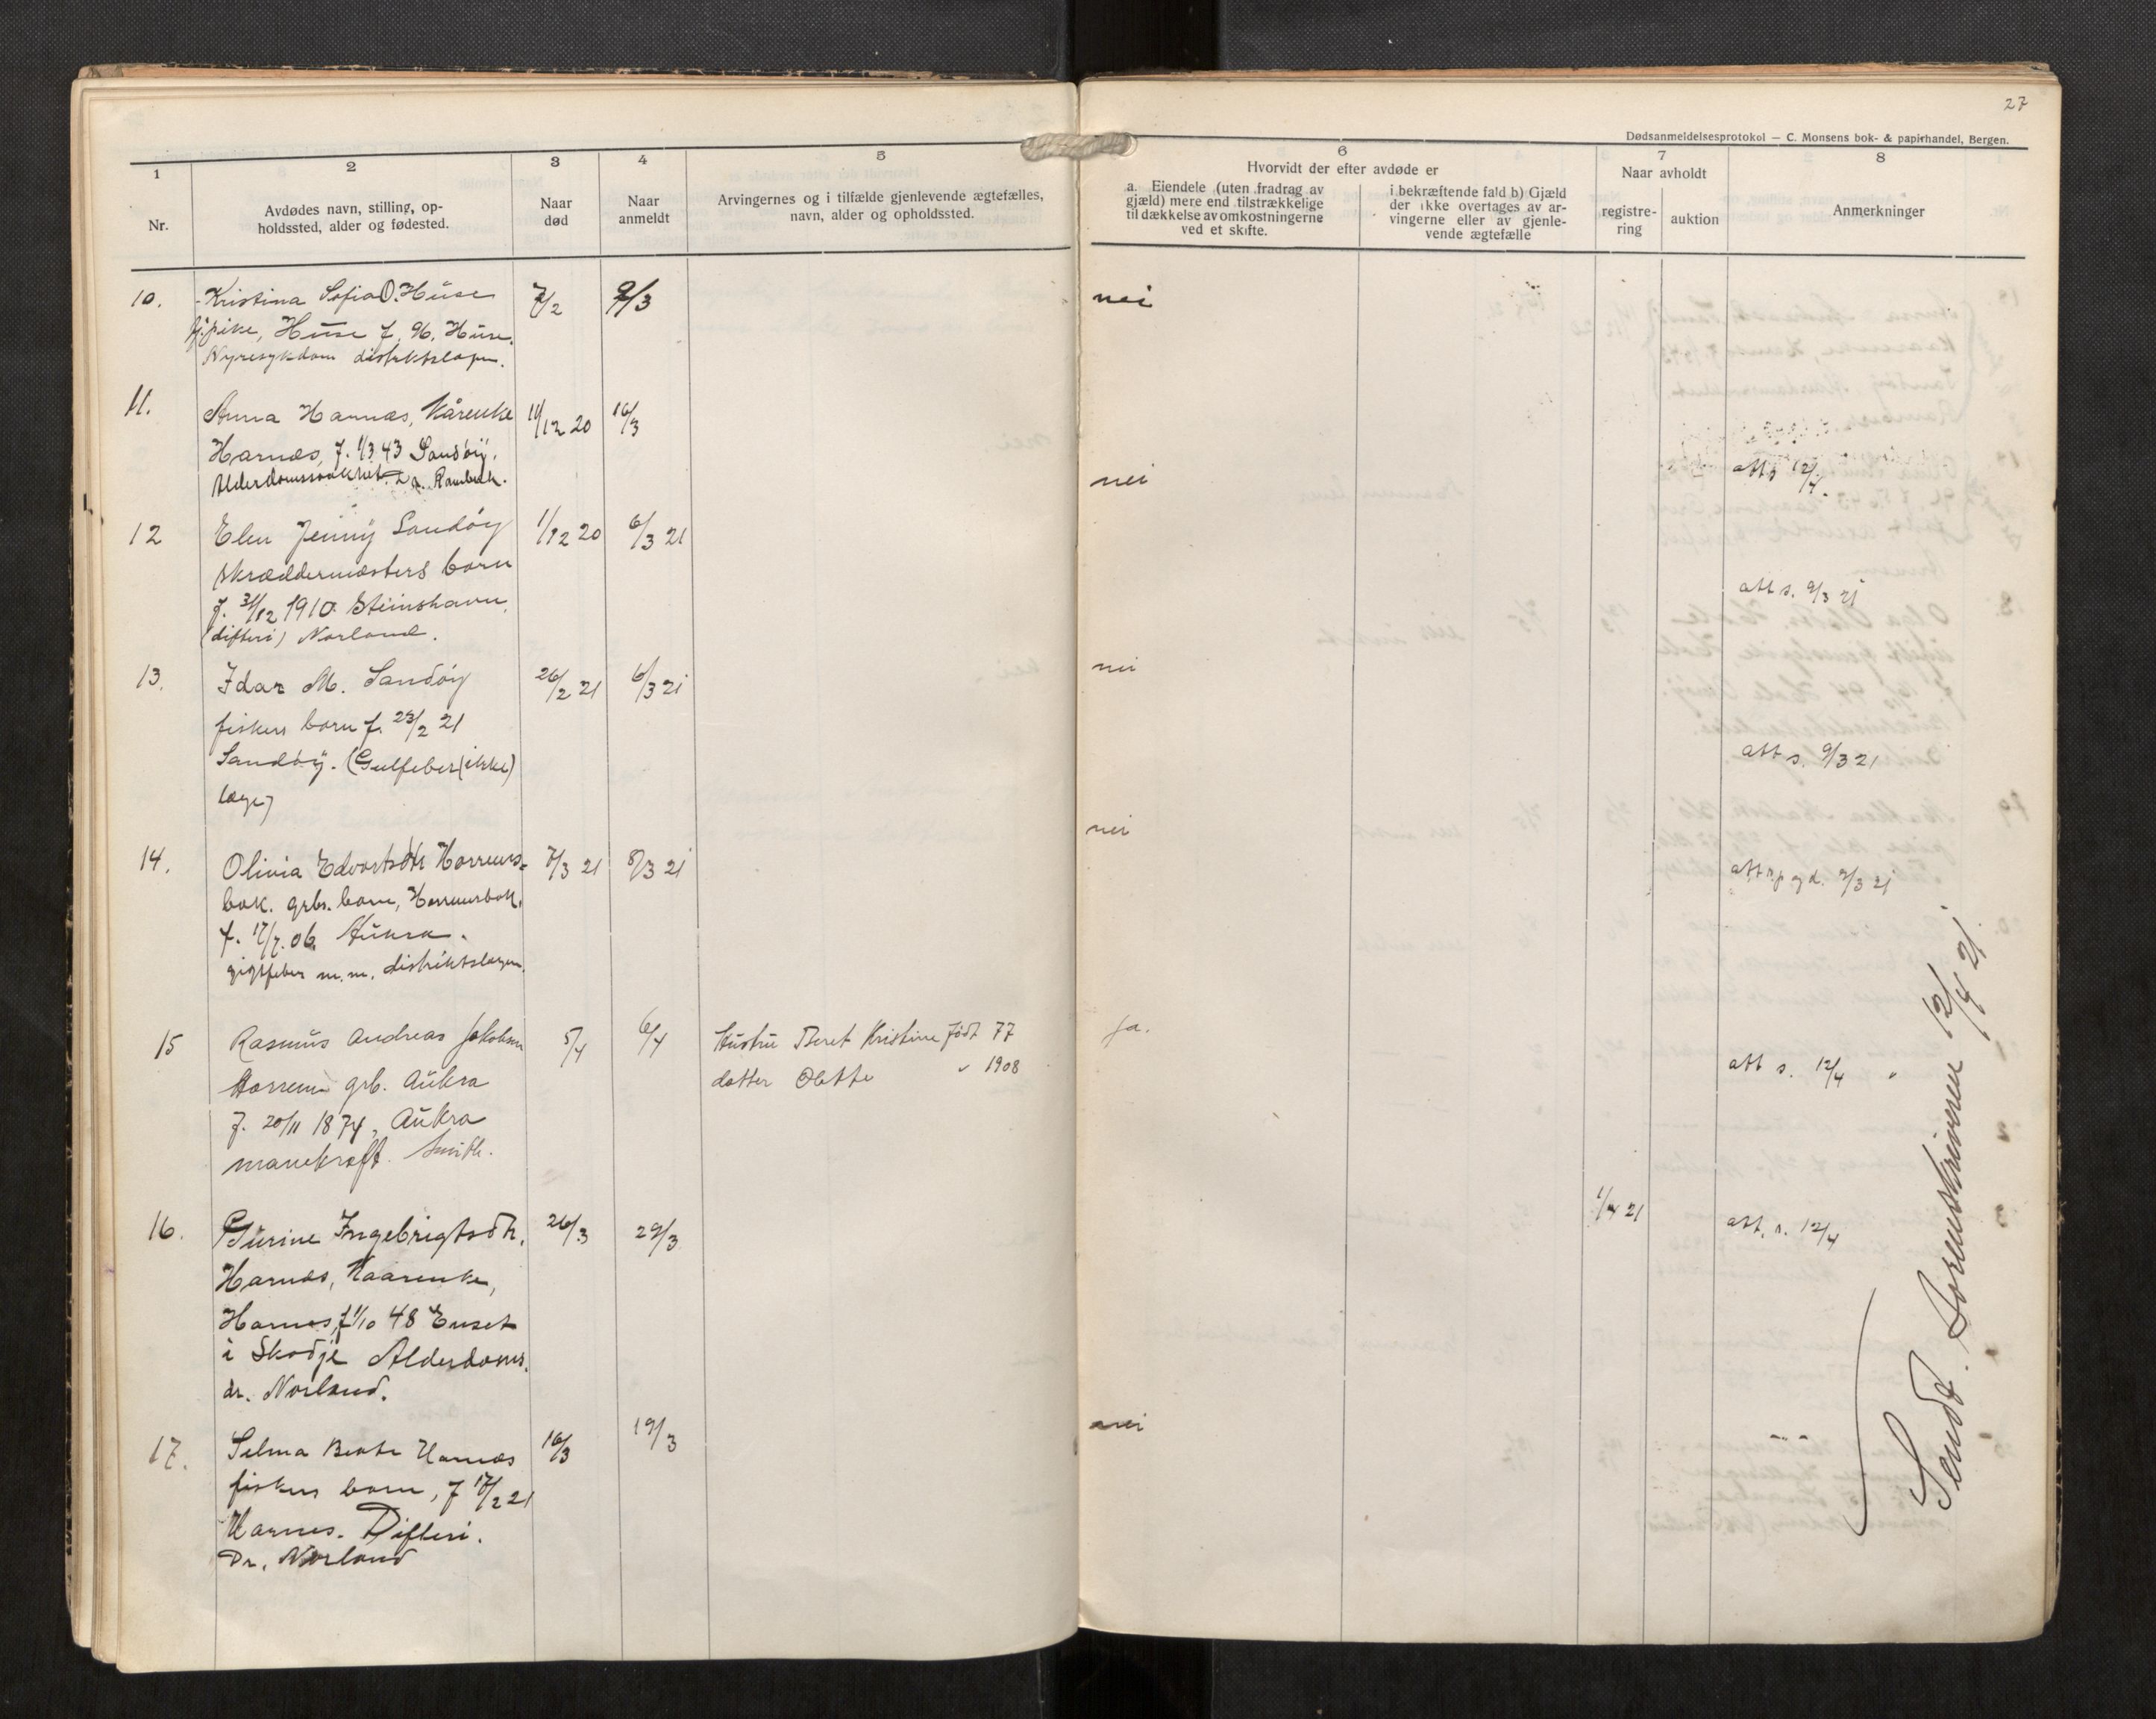 27
Dødsanmeldelsesprotokol — C. Monsens bok- & papirhandel, Bergen.
1
Nr.
2
Avdødes navn, stilling, op-
holdssted, alder og fødested.
3
Naar
død
4
Naar
anmeldt
5
Arvingernes og i tilfælde gjenlevende ægtefælles,
navn, alder og opholdssted.
6
Hvorvidt der efter avdøde er
a. Eiendele (uten fradrag av
gjæld) mere end tilstrækkelige
til dækkelse av omkostningerne
ved et skifte.
i bekræftende fald b) Gjæld
der ikke overtages av ar-
vingerne eller av gjenle-
vende ægtefælle
7
Naar avholdt
registre-
ring
auktion
8
Anmerkninger
10. Kristina Sofia O. Huse 7/2 9/3 nei
pike, Huse f. 96. Huse.
Nyresykdom distriktslægen.
11. Anna Harnæs, Kårenke 11/12 20 16/3
Harnæs, f. 1/3 43 Sandøy.
Alderdomssvakhet. Rambech. nei att s 12/4
12 Elen Jenny Sandøy 1/12 20 6/3 21
skræddermesters barn
f. 31/12 1910. Steinshavn, att s. 9/3 21
(difteri) Norland.
13. Idar M. Sandøy 26/2 21 6/3 21 nei
fiskers barn f. 23/2 21
Sandøy. (Gulfeber (ikke) att s. 9/3 21
læge)
nei
14. Olivia Edvartsdtr Horrems- 7/3 21 8/3 21
bak. grbr. barn, Horremsbak. 9/3 21
f. 17/7. 06. Aukra.
gigtfeber m.m. distriktslægen.
15 Rasmus Andreas Jakobsen 5/4 6/4 Hustru Beret Kristine født 77 ja.
Horrem grb. Aukra datter Olette " 1908 att s. 12/4 "
f. 20/11 1874, Aukra
mavekræft. Smith.
16. Gurine Ingebrigtsdtr. 26/3 29/3 1/4 21 att. s. 12/4
Harnæs, Kaarenke,
Harnes, f 1/10 48 Enset
i Skodje Alderdoms.
dr. Norland.
17. Selma Beate Harnæs 16/3 19/3 nei - -
fiskers barn, f 17/2 21
Harnes. Difteri.
Dr. Norland
Sendt Sorenskriveren 12/4 21.